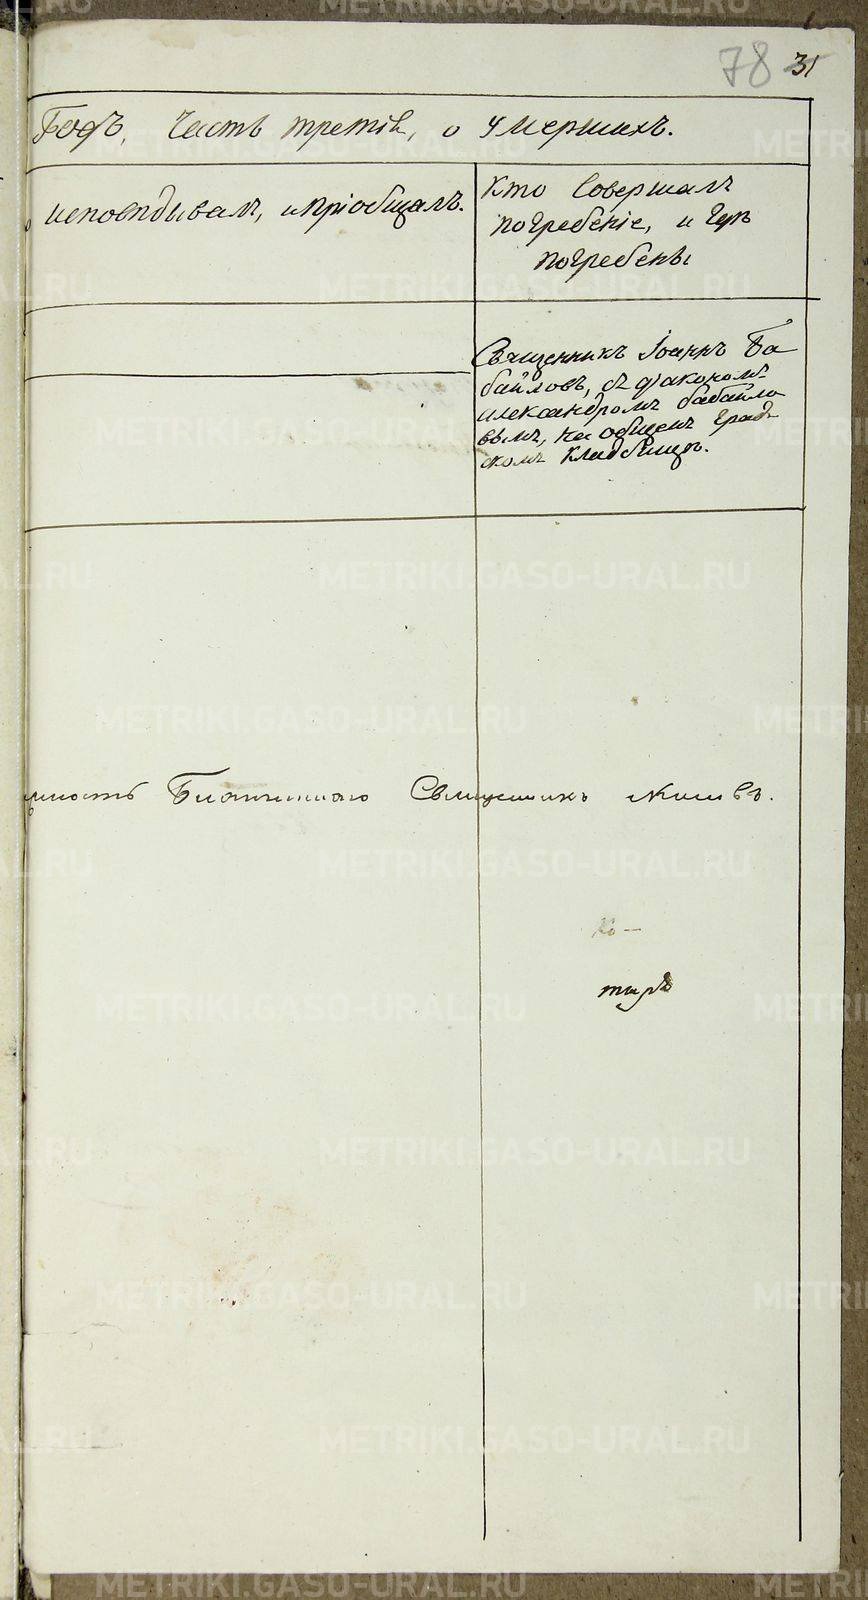 78 31
Годъ, Часть третія, о умершихъ.
исповѣдывалъ, и пріобщалъ.
Кто Совершалъ
погребеніе, и гдѣ
погребены
Священникъ Іоаннъ Ба
байловъ, съ діакономъ
Александромъ бабайло
вымъ, на общемъ град
скомъ кладбищѣ.
Священникъ
Ко-
тиръ
METRIKI.GASO-URAL.RU